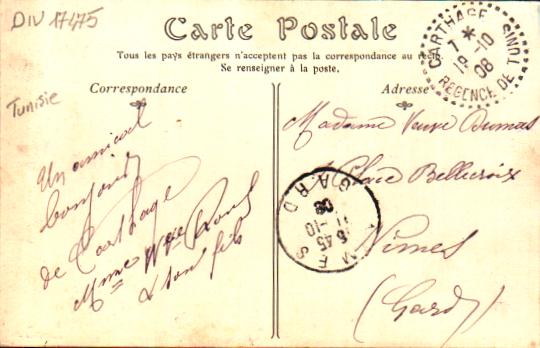 DIV 17475
Carte Postale
Tous les pays étrangers n'acceptent pas la correspondance au
Se renseigner à la poste.
CARTHAGE
7 * 
19-10
08
RÉGENCE DE
Tunisie
Correspondance
Adresse
Un amical
bonjour
de Carthage
Mme Vve
& son fils
Madame Veuve Dumas
Place Bellecroix
Nîmes
(Gard)
NIMES
GARD
11-10
08